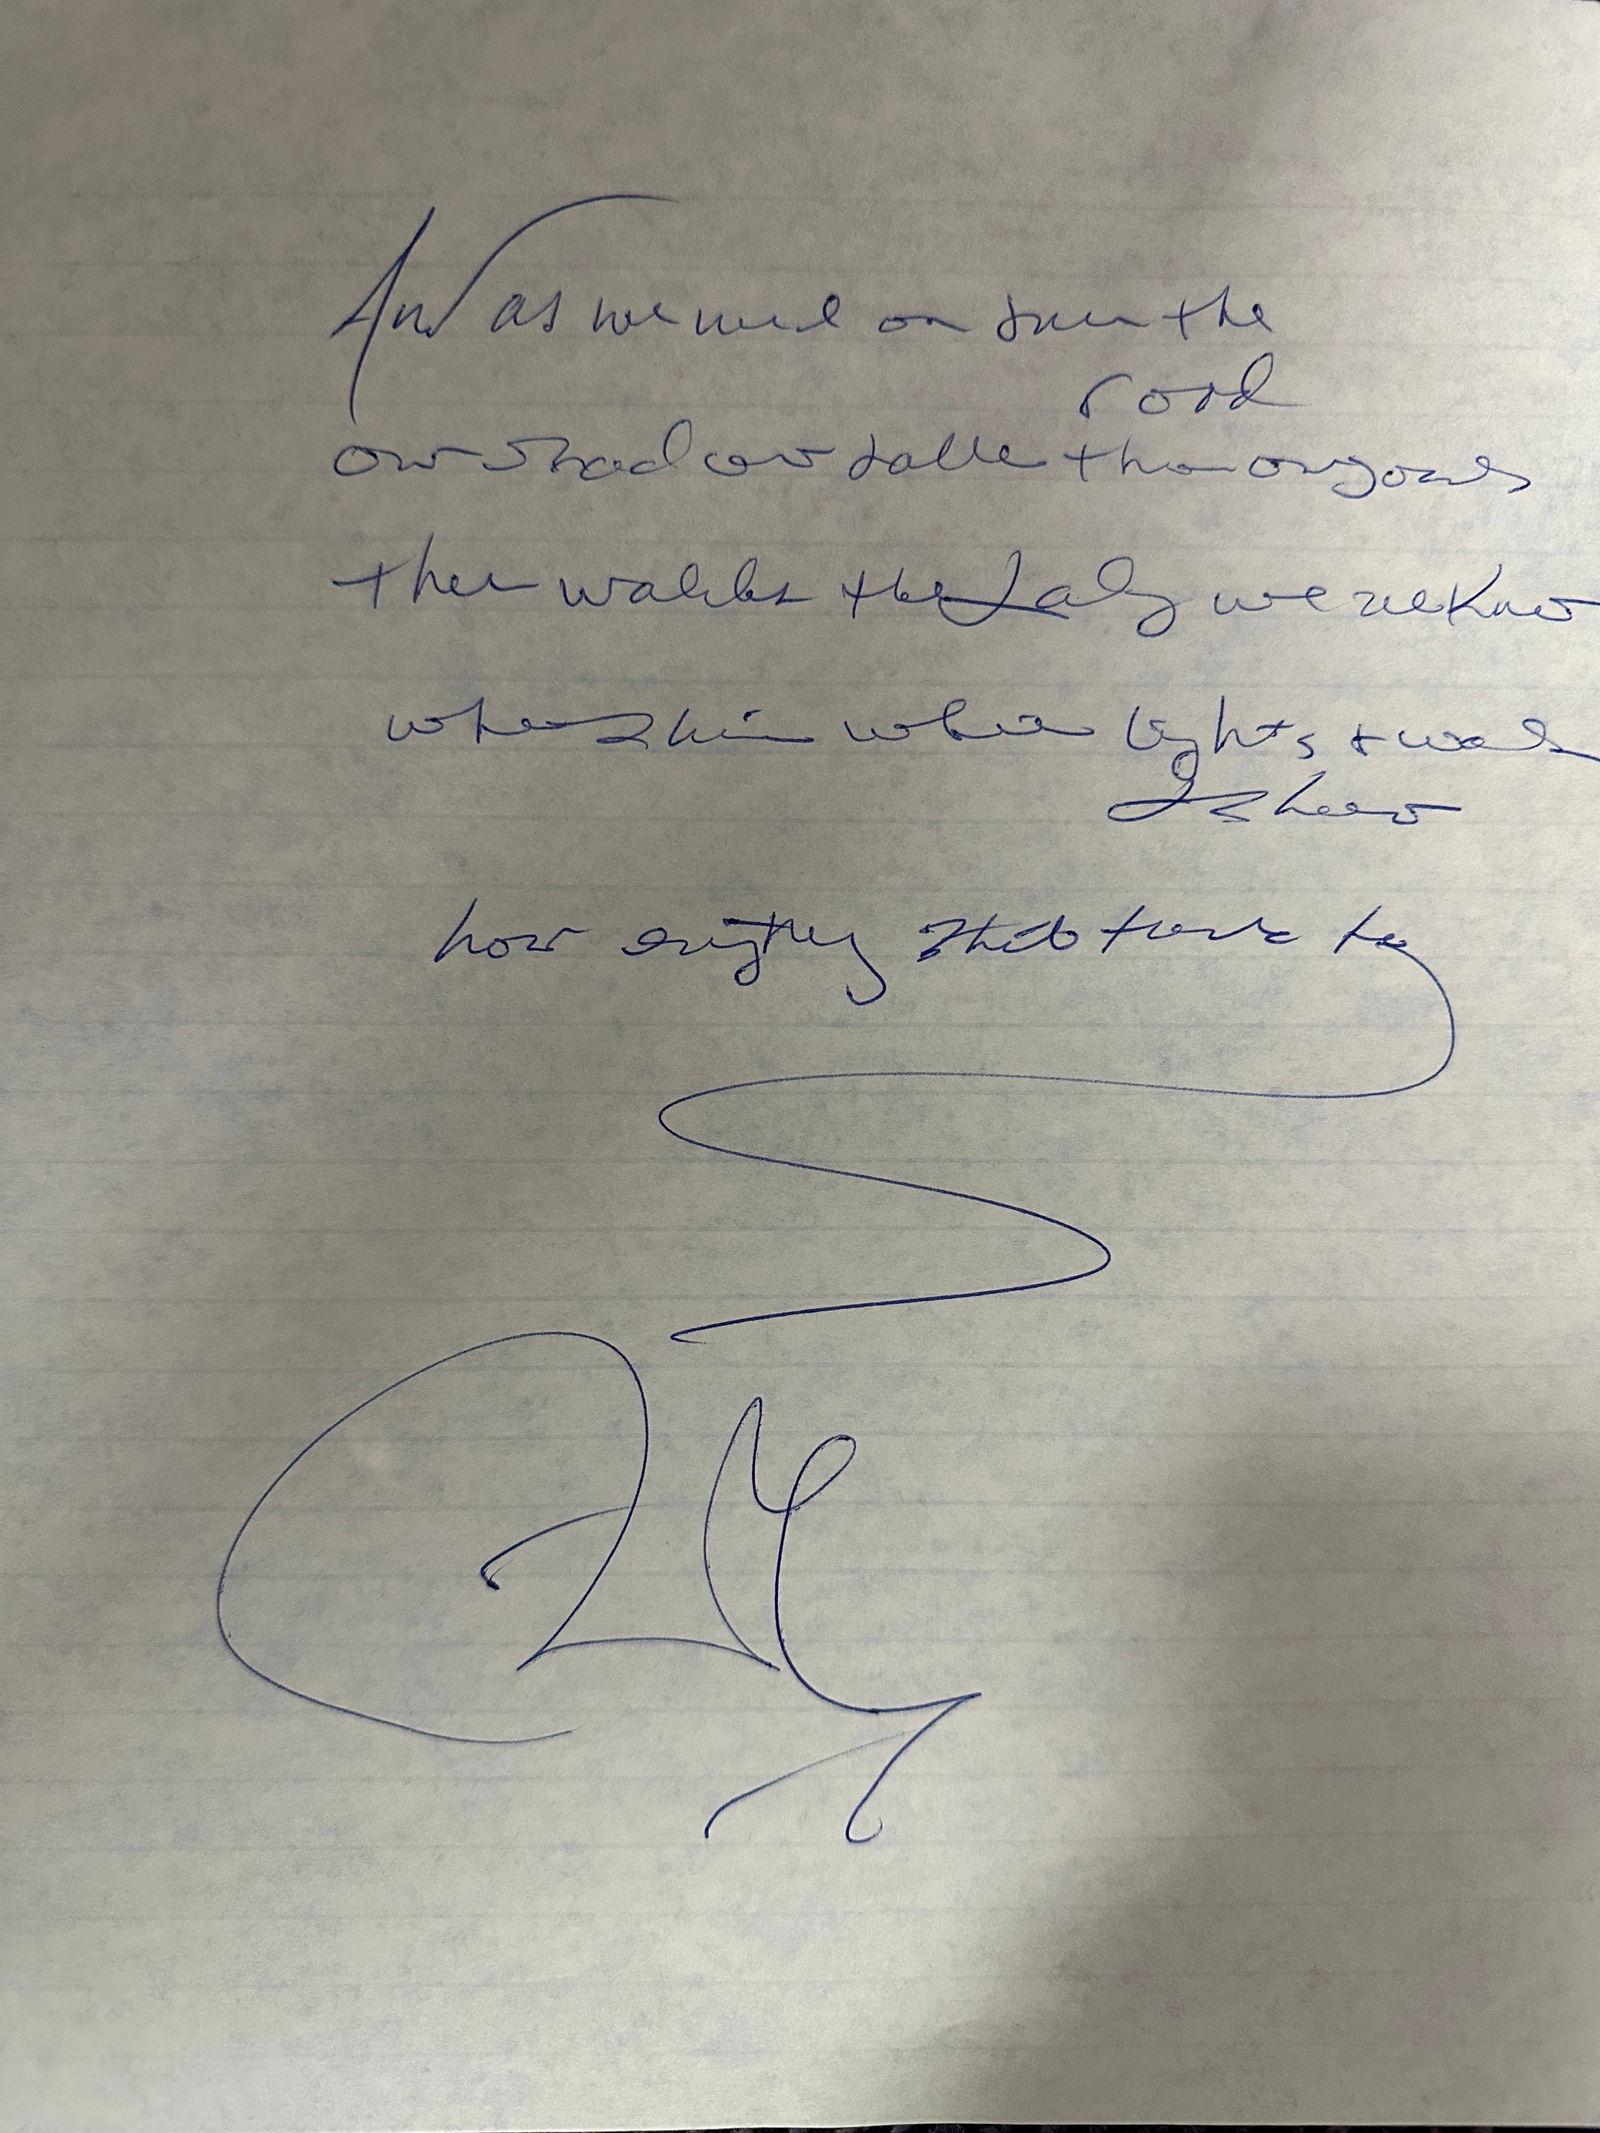 And as we wind on down the
road
our shadow taller than our souls
there walks the Lady we all know
who shines white light & wants
to show
how everything still turns to